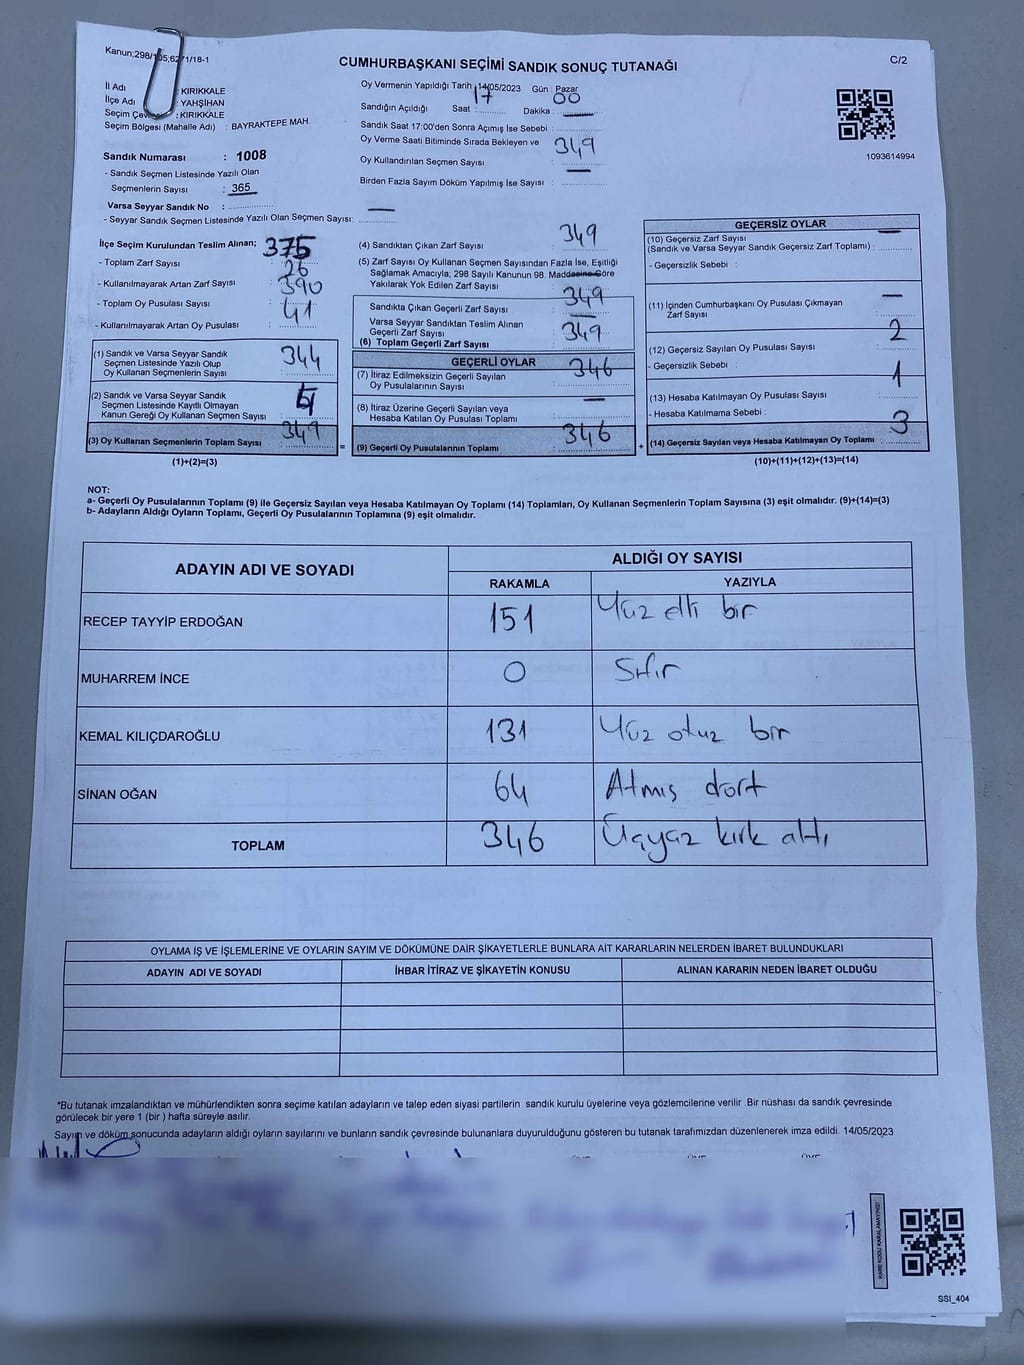 Kanun;298/105;6271/18-1
CUMHURBAŞKANI SEÇİMİ SANDIK SONUÇ TUTANAĞI
C/2
İl Adı : KIRIKKALE
İlçe Adı : YAHŞİHAN
Seçim Çevresi : KIRIKKALE
Seçim Bölgesi (Mahalle Adı) : BAYRAKTEPE MAH.
Sandık Numarası : 1008
- Sandık Seçmen Listesinde Yazılı Olan
Seçmenlerin Sayısı : 365
Varsa Seyyar Sandık No : —
- Seyyar Sandık Seçmen Listesinde Yazılı Olan Seçmen Sayısı:
Oy Vermenin Yapıldığı Tarih : 14/05/2023 Gün : Pazar
Sandığın Açıldığı Saat : 17 Dakika : 00
Sandık Saat 17:00'den Sonra Açımış İse Sebebi : —
Oy Verme Saati Bitiminde Sırada Bekleyen ve
Oy Kullandırılan Seçmen Sayısı : 349
Birden Fazla Sayım Döküm Yapılmış İse Sayısı : —
1093614994
İlçe Seçim Kurulundan Teslim Alınan;
- Toplam Zarf Sayısı : 375
- Kullanılmayarak Artan Zarf Sayısı : 26
- Toplam Oy Pusulası Sayısı : 390
- Kullanılmayarak Artan Oy Pusulası : 41
(1) Sandık ve Varsa Seyyar Sandık
Seçmen Listesinde Yazılı Olup
Oy Kullanan Seçmenlerin Sayısı : 344
(2) Sandık ve Varsa Seyyar Sandık
Seçmen Listesinde Kayıtlı Olmayan
Kanun Gereği Oy Kullanan Seçmen Sayısı :
(3) Oy Kullanan Seçmenlerin Toplam Sayısı : 349
(1)+(2)=(3)
(4) Sandıktan Çıkan Zarf Sayısı : 349
(5) Zarf Sayısı Oy Kullanan Seçmen Sayısından Fazla İse, Eşitliği
Sağlamak Amacıyla; 298 Sayılı Kanunun 98. Maddesine Göre
Yakılarak Yok Edilen Zarf Sayısı : —
Sandıkta Çıkan Geçerli Zarf Sayısı : 349
Varsa Seyyar Sandıktan Teslim Alınan
Geçerli Zarf Sayısı : —
(6) Toplam Geçerli Zarf Sayısı : 349
GEÇERLİ OYLAR
(7) İtiraz Edilmeksizin Geçerli Sayılan
Oy Pusulalarının Sayısı : 346
(8) İtiraz Üzerine Geçerli Sayılan veya
Hesaba Katılan Oy Pusulası Toplamı : —
= (9) Geçerli Oy Pusulalarının Toplamı : 346
GEÇERSİZ OYLAR
(10) Geçersiz Zarf Sayısı
(Sandık ve Varsa Seyyar Sandık Geçersiz Zarf Toplamı) : —
- Geçersizlik Sebebi :
(11) İçinden Cumhurbaşkanı Oy Pusulası Çıkmayan
Zarf Sayısı : —
(12) Geçersiz Sayılan Oy Pusulası Sayısı : 2
- Geçersizlik Sebebi :
(13) Hesaba Katılmayan Oy Pusulası Sayısı : 1
- Hesaba Katılmama Sebebi :
+ (14) Geçersiz Sayılan veya Hesaba Katılmayan Oy Toplamı : 3
(10)+(11)+(12)+(13)=(14)
NOT:
a- Geçerli Oy Pusulalarının Toplamı (9) ile Geçersiz Sayılan veya Hesaba Katılmayan Oy Toplamı (14) Toplamları, Oy Kullanan Seçmenlerin Toplam Sayısına (3) eşit olmalıdır. (9)+(14)=(3)
b- Adayların Aldığı Oyların Toplamı, Geçerli Oy Pusulalarının Toplamına (9) eşit olmalıdır.
ADAYIN ADI VE SOYADI
ALDIĞI OY SAYISI
RAKAMLA YAZIYLA
RECEP TAYYİP ERDOĞAN 151 Yüz elli bir
MUHARREM İNCE 0 Sıfır
KEMAL KILIÇDAROĞLU 131 Yüz otuz bir
SİNAN OĞAN 64 Atmış dört
TOPLAM 346 Üçyüz kırk altı
OYLAMA İŞ VE İŞLEMLERİNE VE OYLARIN SAYIM VE DÖKÜMÜNE DAİR ŞİKAYETLERLE BUNLARA AİT KARARLARIN NELERDEN İBARET BULUNDUKLARI
ADAYIN ADI VE SOYADI İHBAR İTİRAZ VE ŞİKAYETİN KONUSU ALINAN KARARIN NEDEN İBARET OLDUĞU
*Bu tutanak imzalandıktan ve mühürlendikten sonra seçime katılan adayların ve talep eden siyasi partilerin sandık kurulu üyelerine veya gözlemcilerine verilir .Bir nüshası da sandık çevresinde
görülecek bir yere 1 (bir ) hafta süreyle asılır.
Sayım ve döküm sonucunda adayların aldığı oyların sayılarını ve bunların sandık çevresinde bulunanlara duyurulduğunu gösteren bu tutanak tarafımızdan düzenlenerek imza edildi. 14/05/2023
KARE KODU KARALAMAYINIZ!
SSI_404